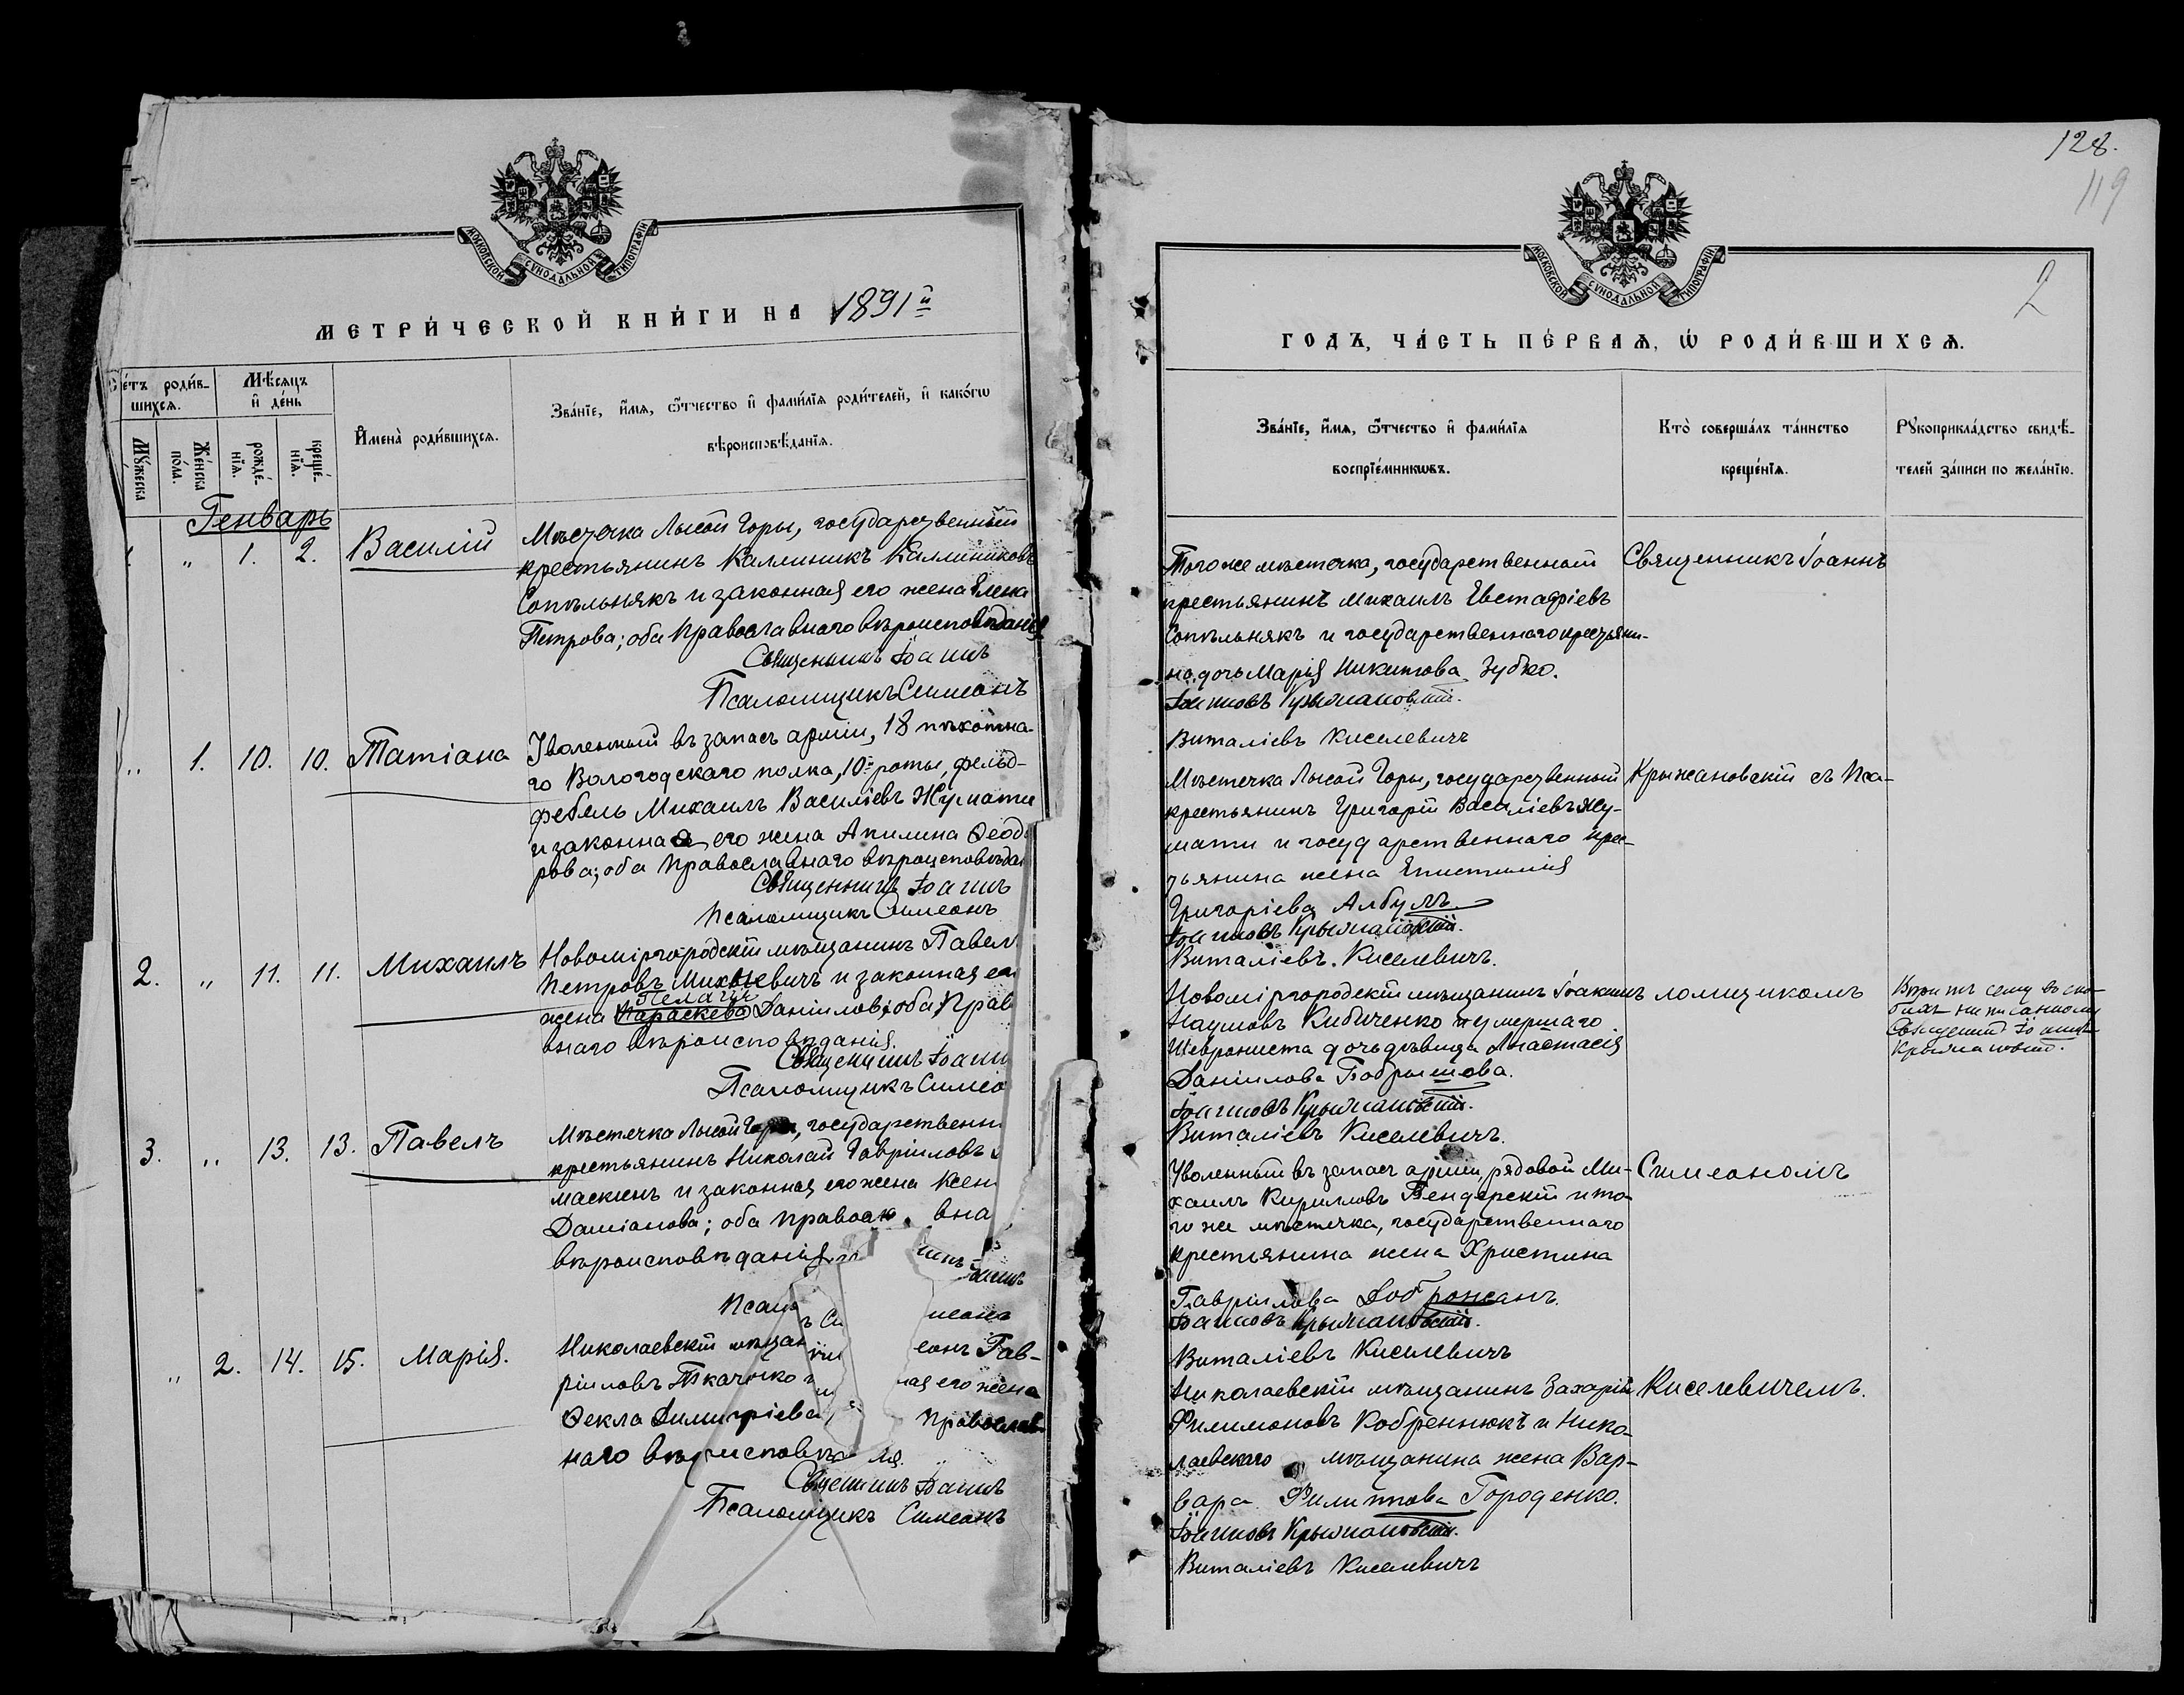 МОСКОВСКОЙ СУНОДАЛЬНОЙ ТИПОГРАФІИ
МЕТРИ́ЧЕСКОЙ КНИ́ГИ НА 1891й
Сче́тъ роди́в-
шихся.
Мѣ́сяцъ
и҆ де́нь
Му́жеска
Же́нска
по́ла.
рожде́-
нїя.
креще́-
нїя.
И҆мена̀ роди́вшихся.
Зва́нїе, и҆́мя, ѻ҆́тчество и҆ фами́лїя роди́телей, и҆ како́гѡ
вѣроисповѣ́данїя.
Генварь
„ 1. 2. Василій
Мѣстечка Лысой Горы, государственный
крестьянинъ Каллиникъ Каллиниковъ
Сопѣльнякъ и законная его жена Елена
Петрова; оба Православнаго вѣроисповѣданія
Священникъ Іоаннъ
Псаломщикъ Симеонъ
„ 1. 10. 10. Татіана
Уволенный въ запасъ арміи, 18 пѣхотна-
го Вологодскаго полка, 10й роты, фельд-
фебель Михаилъ Василіевъ Жумати
и законная его жена Акилина Ѳеодо
рова; оба Православнаго вѣроисповѣдан
Священникъ Іоаннъ
Псаломщикъ Симеонъ
2. „ 11. 11. Михаилъ
Новоміргородскій мѣщанинъ Павелъ
Петровъ Михневичъ и законная его
Пелагія
жена Параскева Даніилова; оба Прав
внаго вѣроисповѣданія.
Священникъ Іоанн
Псаломщикъ Симео
3. „ 13. 13. Павелъ
Мѣстечка Лысой Горы, государственн
крестьянинъ Николай Гавріиловъ
маскинъ и законная его жена Ксен
Даміанова; оба Правосл вна
вѣроисповѣданія.
Псал
„ 2. 14. 15. Марія.
Николаевскій мѣщан еонъ Гав-
ріиловъ Ткаченко и ная его жена
Ѳекла Димитріева, Православ-
наго вѣроисповѣ ія.
Священникъ Іоаннъ
Псаломщикъ Симеонъ
128.
119
2
МОСКОВСКОЙ СУНОДАЛЬНОЙ ТИПОГРАФІИ
ГОДЪ, ЧА́СТЬ ПЕ́РВАЯ, Ѡ҆ РОДИ́ВШИХСЯ.
Зва́нїе, и҆́мя, ѻ҆́тчество и҆ фами́лїя
воспрїе́мникѡвъ.
Кто̀ соверша́лъ та́инство
креще́нїя.
Рꙋкоприкла́дство свидѣ́-
телей за́писи по жела́нїю.
Тогоже мѣстечка, государственный
крестьянинъ Михаилъ Евстафіевъ
Сопѣльнякъ и государственнаго крестьяни-
на дочь Марія Никитова Зубко.
Іоанновъ Крыжановскій.
Виталіевъ Киселевичъ
Священникъ Іоаннъ
Мѣстечка Лысой Горы, государственный
крестьянинъ Григорій Василіевъ Жу-
мати и государственнаго кре-
тьянина жена Епистимія
Григоріева Албулъ.
Іоанновъ Крыжановскій.
Виталіевъ Киселевичъ.
Крыжановскій съ Пса-
Новоміргородскій мѣщанинъ Іоакимъ
Наумовъ Кибиченко и умершаго
Шеврониста дочь дѣвица Анастасія
Даніилова Бобрышова.
Іоанновъ Крыжановскій.
Виталіевъ Киселевичъ.
ломщикомъ
Священникъ Іоаннъ
Крыжановскій.
Уволенный въ запасъ арміи, рядовой Ми-
хаилъ Кирилловъ Бендерскій и то-
го же мѣстечка, государственнаго
крестьянина жена Христина
Гавріилова Доброжанъ.
Іоанновъ Крыжановскій.
Виталіевъ Киселевичъ
Симеономъ
Николаевскій мѣщанинъ Захарій
Филимоновъ Кобренюкъ и Нико-
лаевскаго мѣщанина жена Вар-
вара Филиппова Городенко.
Іоанновъ Крыжановскій.
Виталіевъ Киселевичъ
Киселевичемъ.